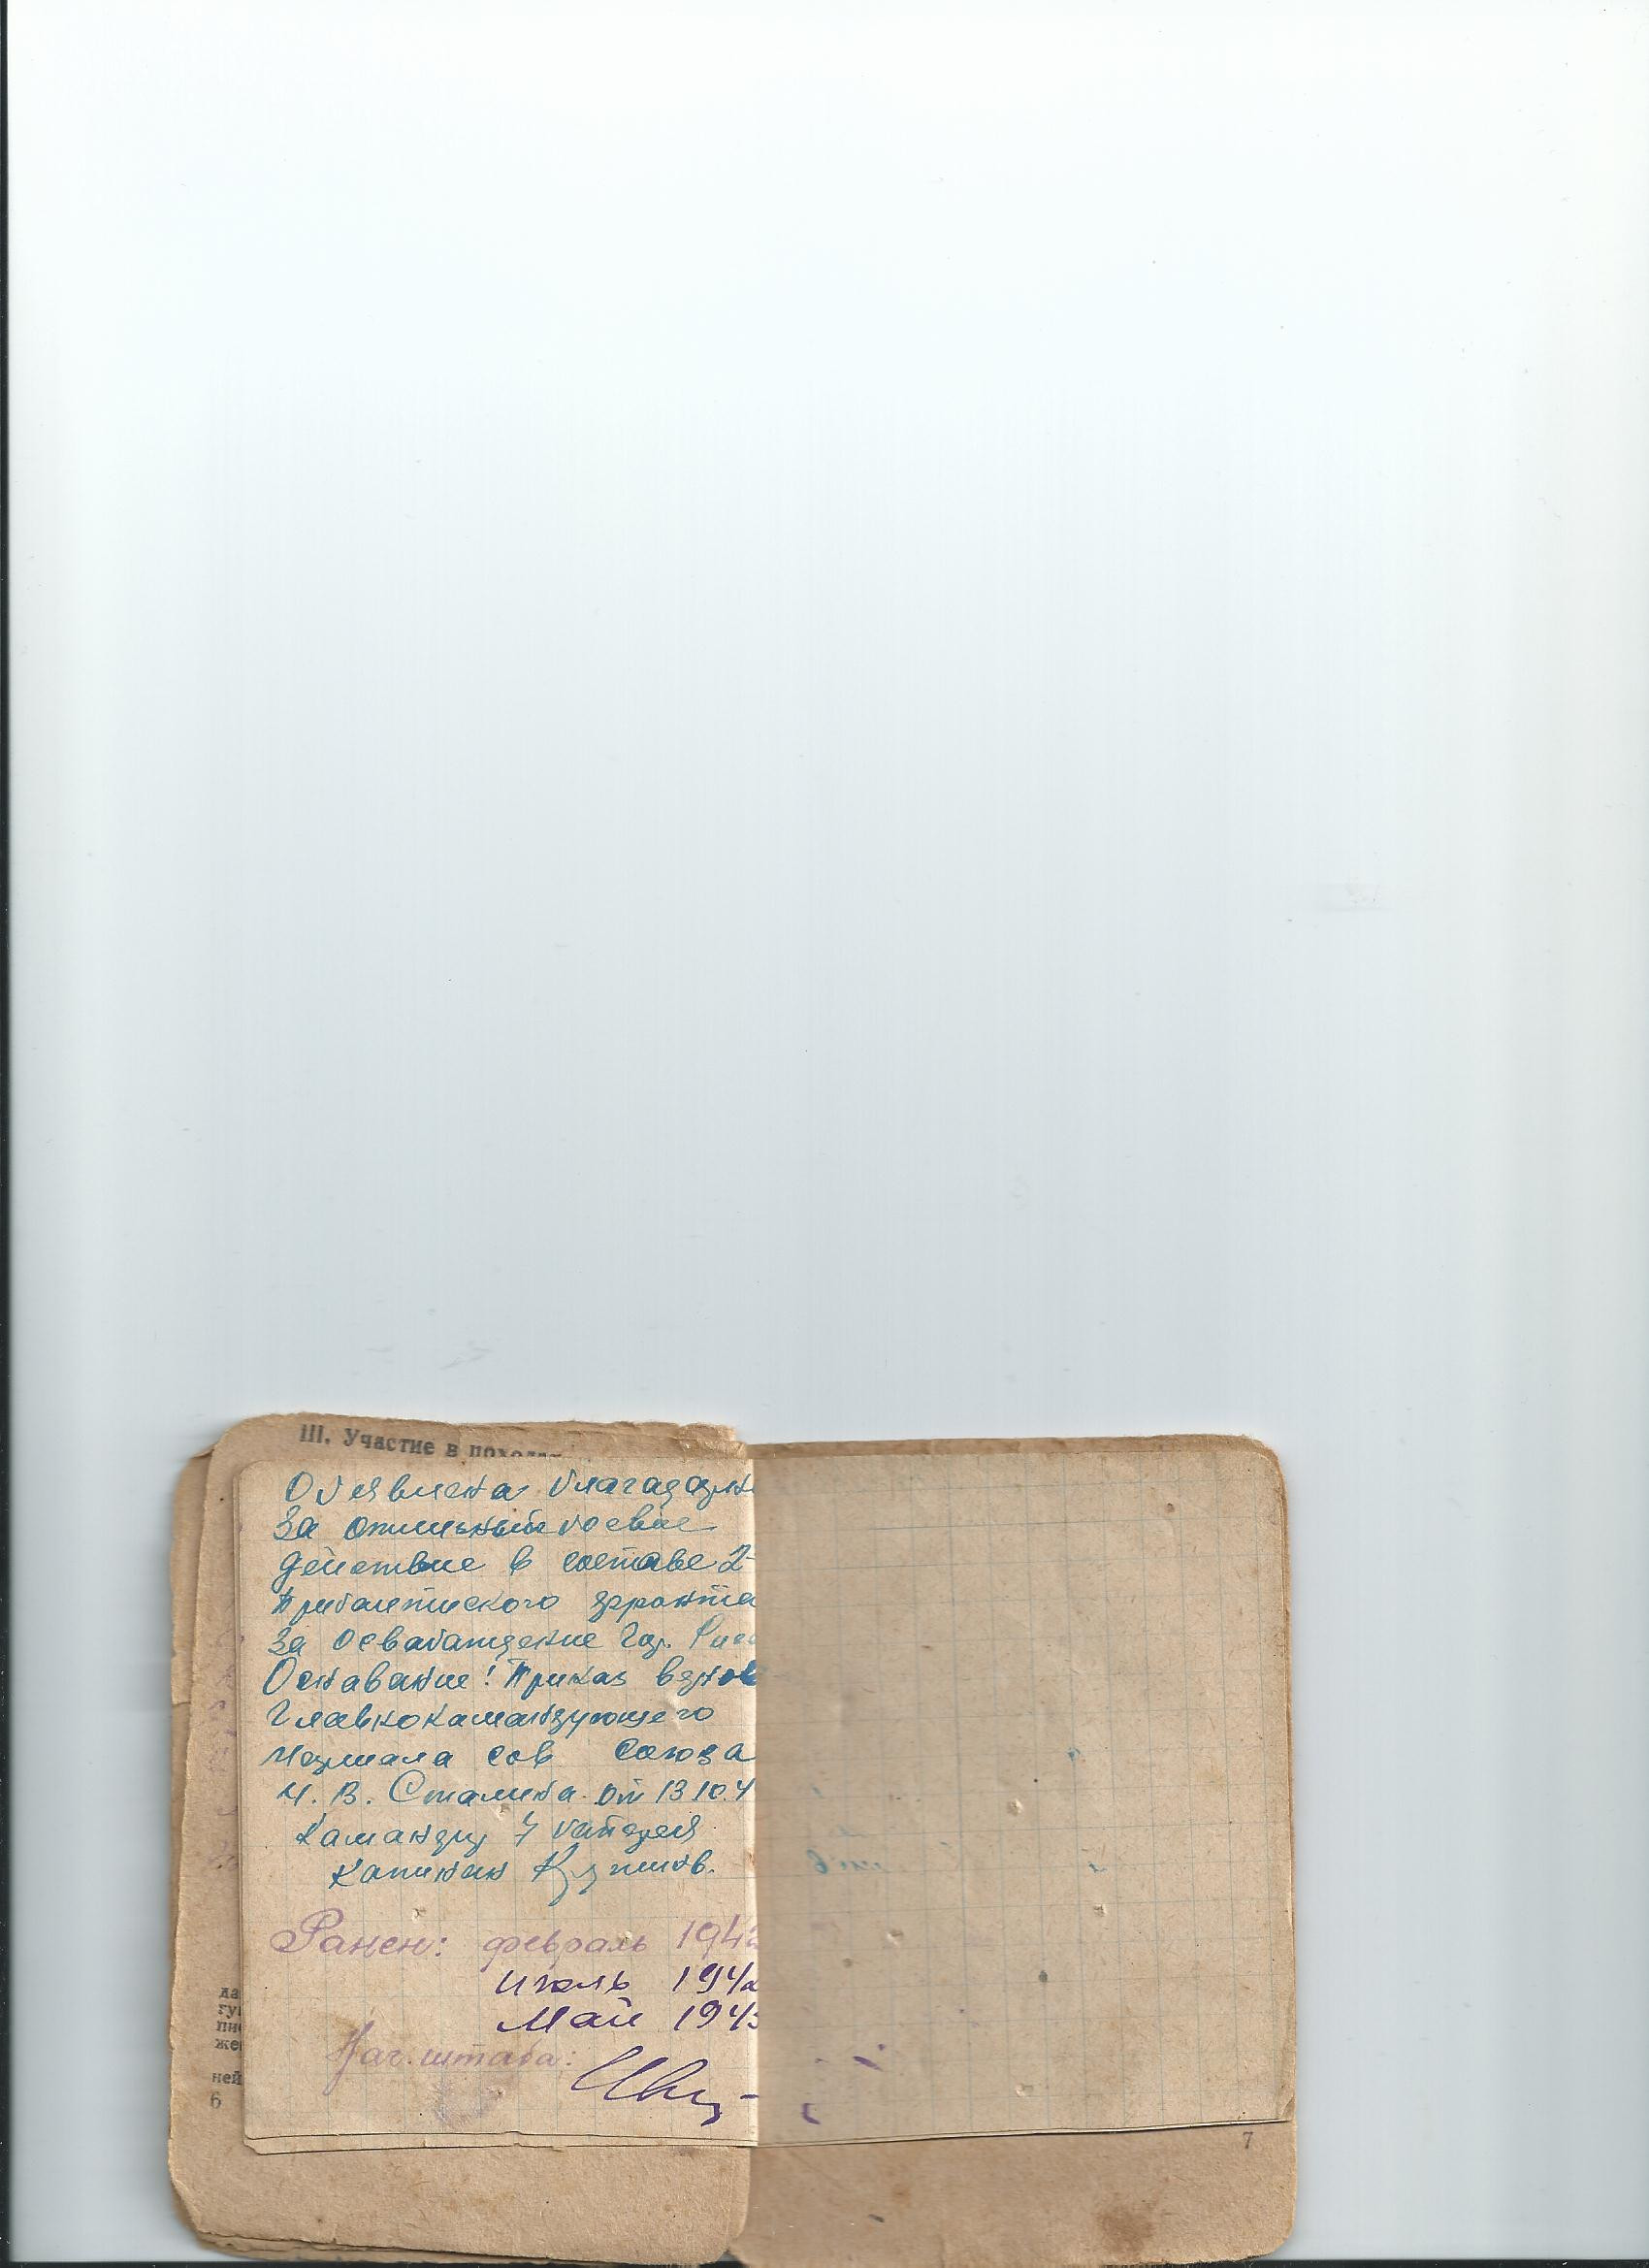 III. Участие в поход
Объявлена благадарн
За отличный боевые
действие в составе 2
Прибалтиского фронта
За Освабаждение гор. Рига
Основание! Приказ верхов
Главнокамандующего
Маршала Сов Союза
И. В. Сталина от 13 10.4
Камандир 7 батареи
Капитан
Ранен: февраль 1942
июль 1942
Май 1943
Нач. штаба:
да
гу
пи
же
ней
6
7